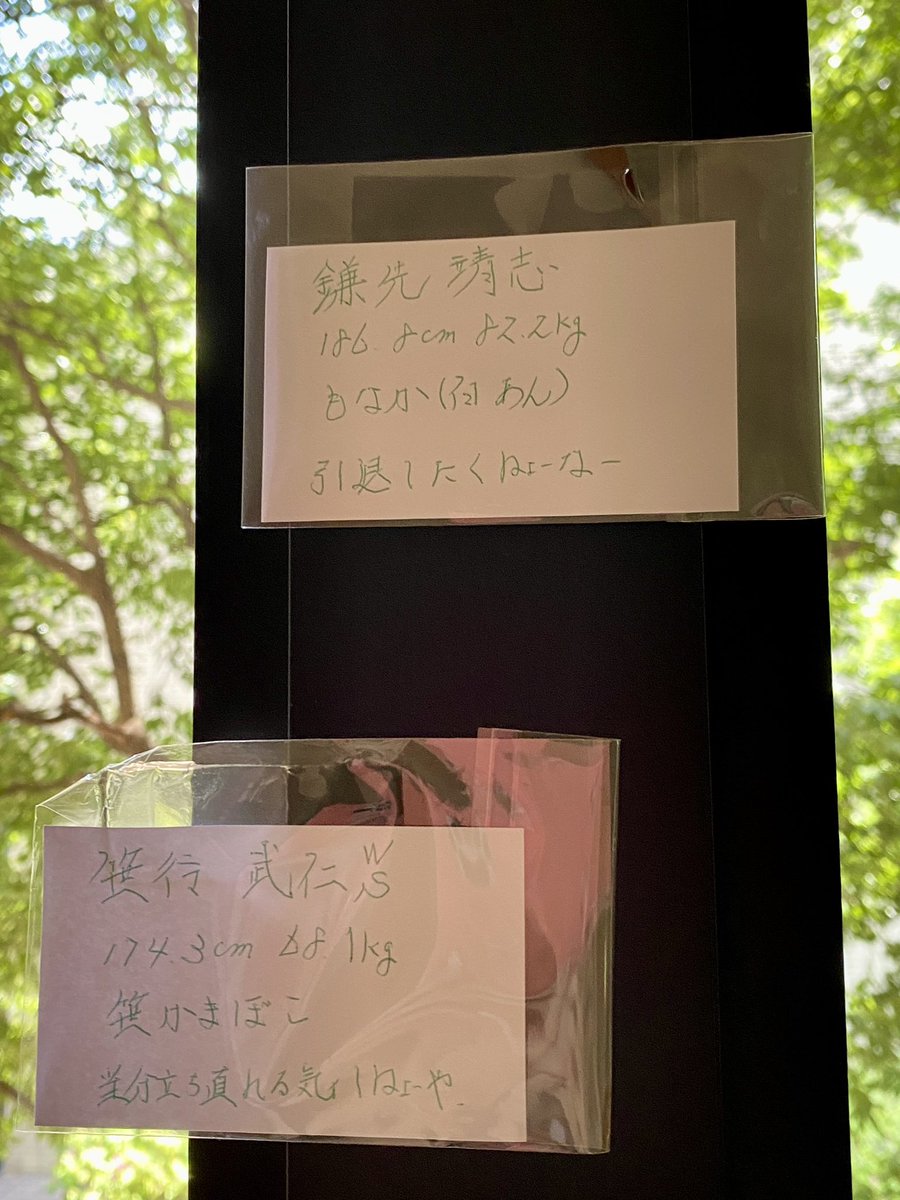 鎌先 靖志
186.8cm 82.2kg
もなか(白あん)
引退したくねぇーなー
笹谷 武仁 WS
174.3cm 68.1kg
笹かまぼこ
当分立ち直れる気しねぇーや.